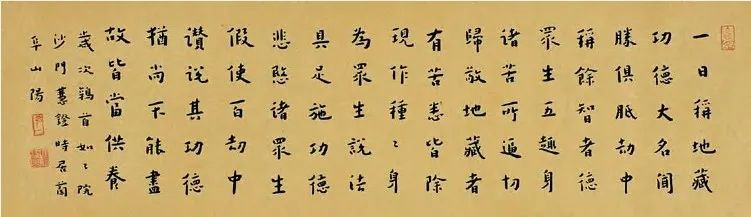 一日稱地藏
功德大名聞
勝俱胝劫中
稱餘智者德
眾生五趣身
諸苦所逼切
歸敬地藏者
有苦悉皆除
現作種々身
為眾生說法
具足施功德
悲愍諸眾生
假使百劫中
讚說其功德
猶尚不能盡
故皆當供養
歲次鶉首如々院
沙門慧證時居
阜山陽